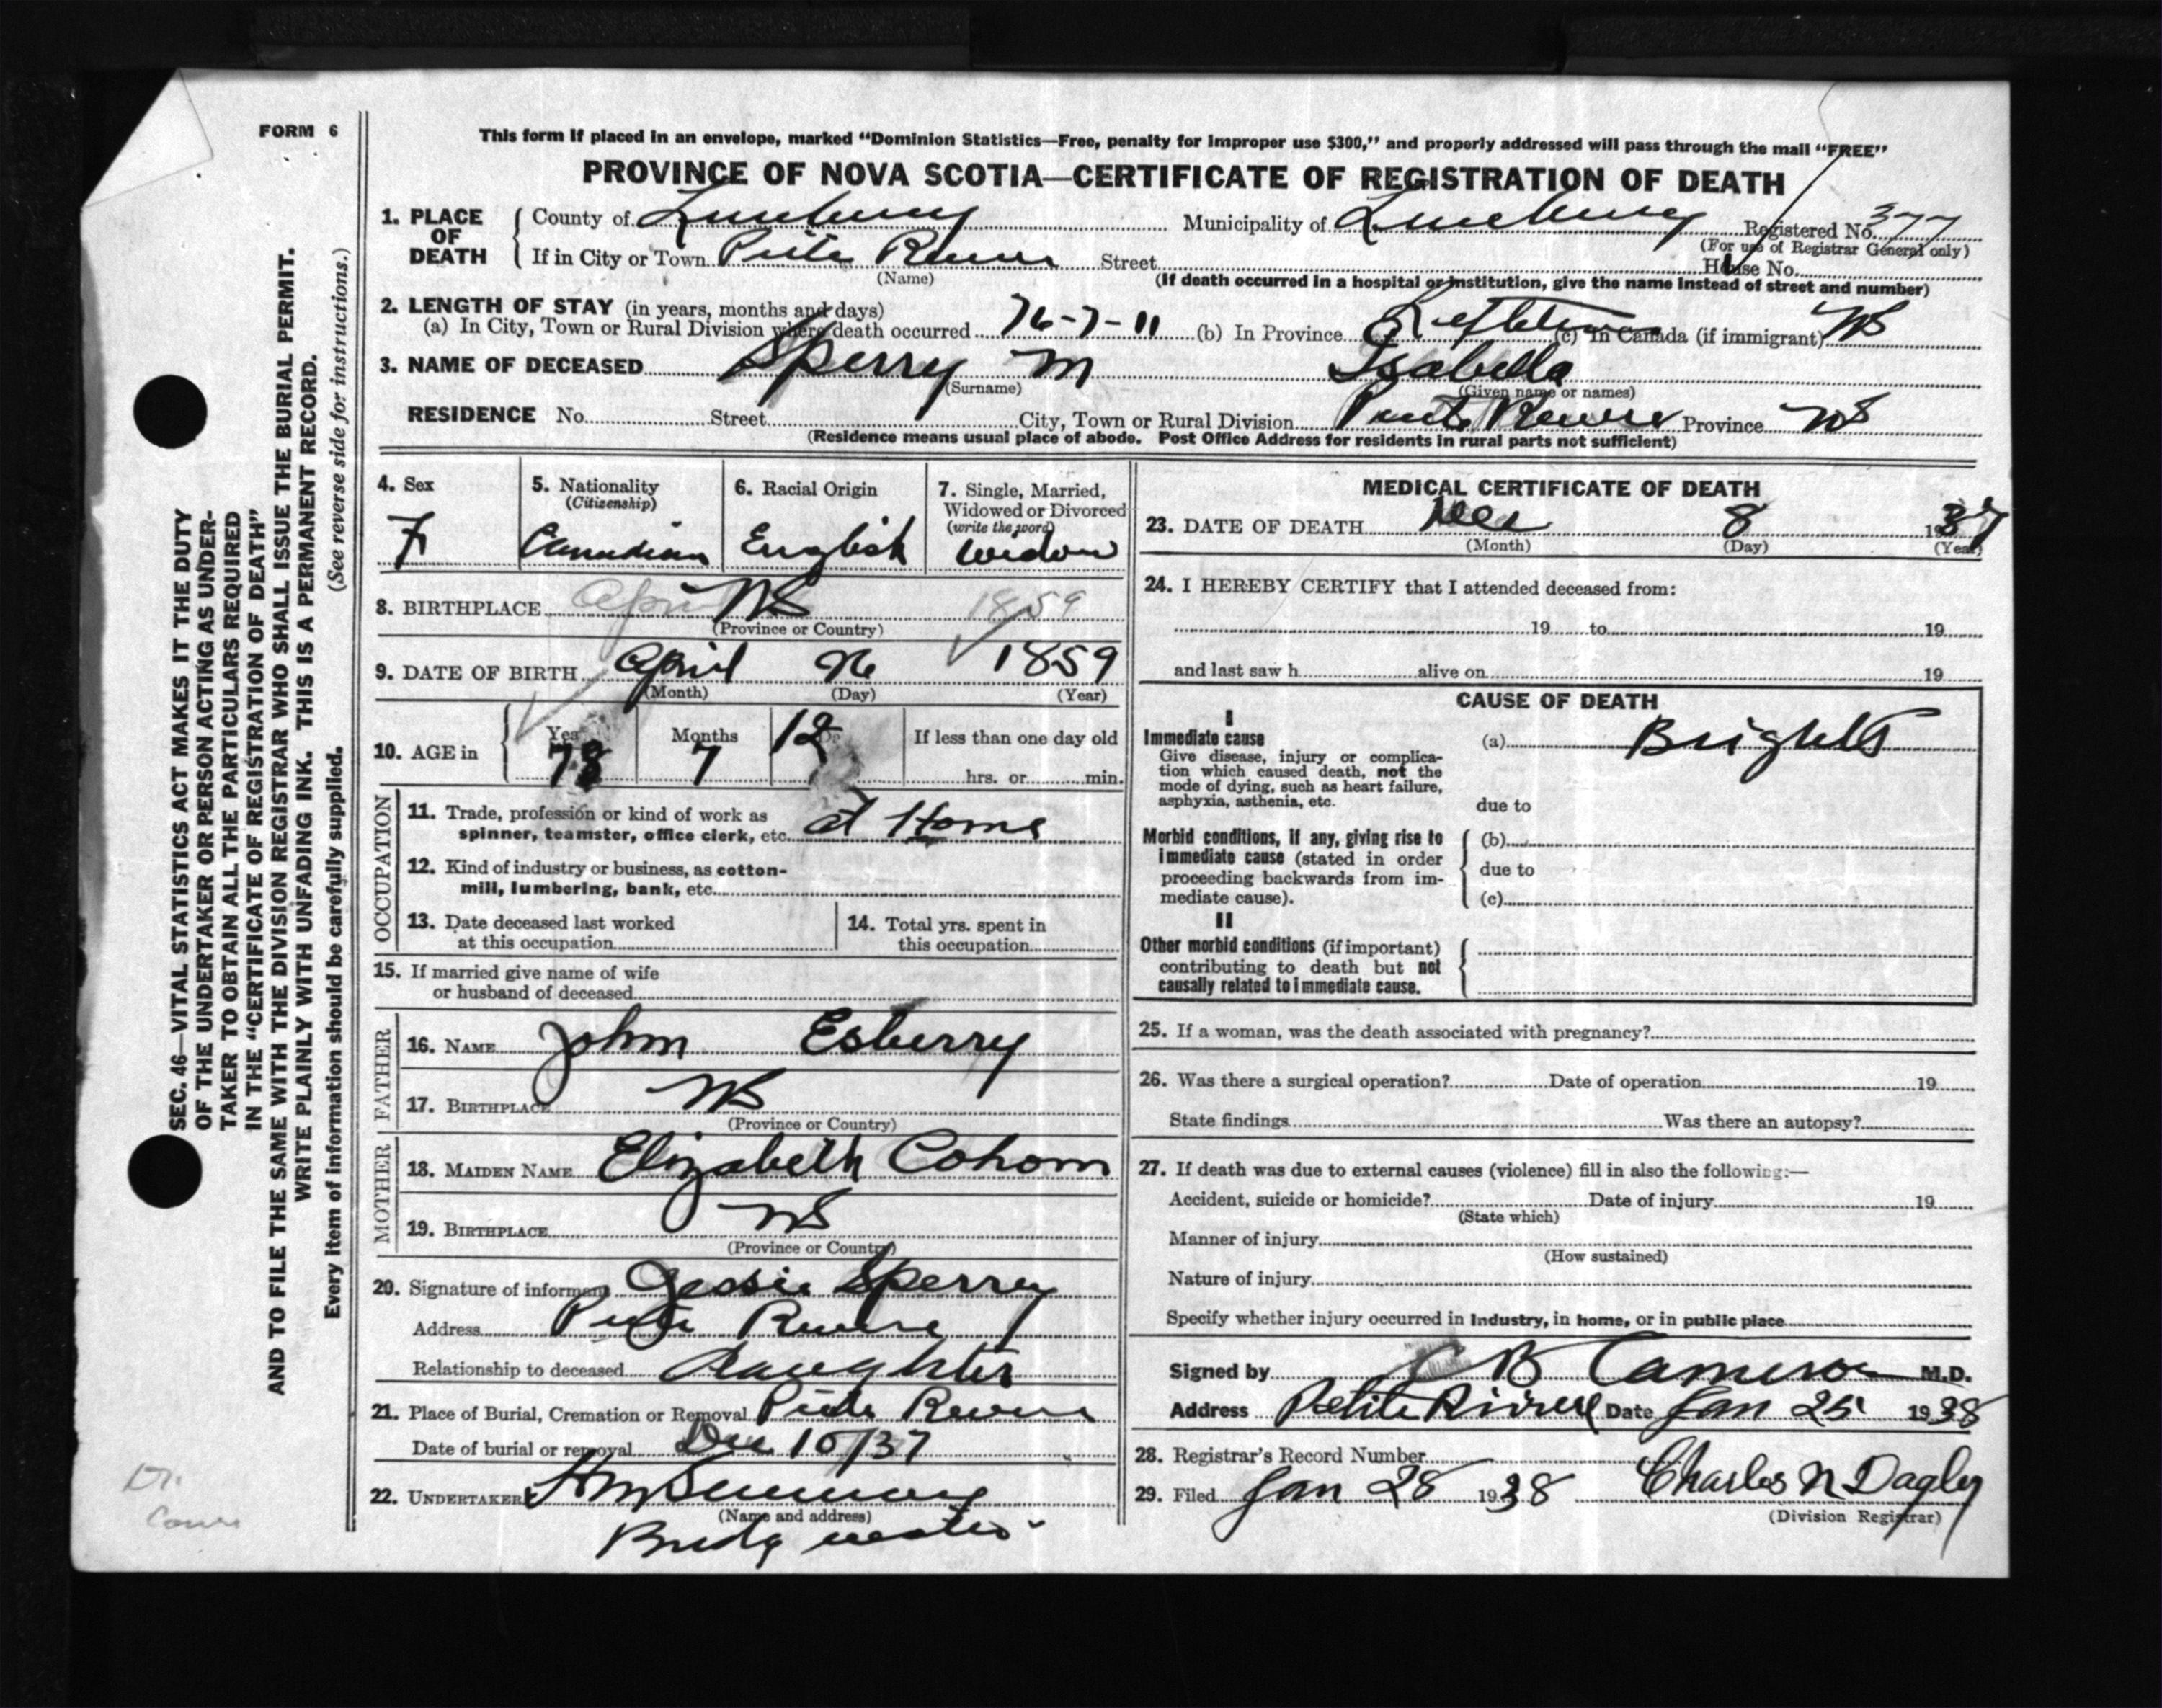 FORM 6
This form if placed in an envelope, marked “Dominion Statistics—Free, penalty for improper use $300,” and properly addressed will pass through the mail “FREE”
PROVINCE OF NOVA SCOTIA—CERTIFICATE OF REGISTRATION OF DEATH
1. PLACE OF DEATH
County of Lunenburg Municipality of Lunenburg Registered No. 377
(For use of Registrar General only)
If in City or Town Street House No.
(Name) (If death occurred in a hospital or institution, give the name instead of street and number)
2. LENGTH OF STAY (in years, months and days)
(a) In City, Town or Rural Division where death occurred 76-7-11 (b) In Province Lifetime (c) In Canada (if immigrant) NS
3. NAME OF DECEASED Sperry M Isabella
(Surname) (Given name or names)
RESIDENCE No. Street City, Town or Rural Division Province NS
(Residence means usual place of abode. Post Office Address for residents in rural parts not sufficient)
4. Sex F
5. Nationality (Citizenship) Canadian
6. Racial Origin English
7. Single, Married, Widowed or Divorced (write the word) Widow
8. BIRTHPLACE April NS 1859
(Province or Country)
9. DATE OF BIRTH April 26 1859
(Month) (Day) (Year)
10. AGE in Years 78 Months 7 12 If less than one day old
hrs. or min.
OCCUPATION
11. Trade, profession or kind of work as
spinner, teamster, office clerk, etc. at Home
12. Kind of industry or business, as cotton-
mill, lumbering, bank, etc.
13. Date deceased last worked
at this occupation
14. Total yrs. spent in
this occupation
15. If married give name of wife
or husband of deceased
FATHER
16. NAME John Esberry
17. BIRTHPLACE NS
(Province or Country)
MOTHER
18. MAIDEN NAME Elizabeth Cohom
19. BIRTHPLACE NS
(Province or Country)
20. Signature of informant Jessie Sperry
Address
Relationship to deceased daughter
21. Place of Burial, Cremation or Removal
Date of burial or removal Dec 10/37
22. UNDERTAKER
(Name and address)
Bridgewater
MEDICAL CERTIFICATE OF DEATH
23. DATE OF DEATH Dec 8 1937
(Month) (Day) (Year)
24. I HEREBY CERTIFY that I attended deceased from:
19 to 19
and last saw h alive on 19
CAUSE OF DEATH
I
Immediate cause
Give disease, injury or complica-
tion which caused death, not the
mode of dying, such as heart failure,
asphyxia, asthenia, etc.
(a) Brights
due to
Morbid conditions, if any, giving rise to
immediate cause (stated in order
proceeding backwards from im-
mediate cause).
(b)
due to
(c)
II
Other morbid conditions (if important)
contributing to death but not
causally related to immediate cause.
25. If a woman, was the death associated with pregnancy?
26. Was there a surgical operation? Date of operation 19
State findings Was there an autopsy?
27. If death was due to external causes (violence) fill in also the following:—
Accident, suicide or homicide? Date of injury 19
(State which)
Manner of injury
(How sustained)
Nature of injury
Specify whether injury occurred in industry, in home, or in public place
Signed by C B Cameron M.D.
Address Petite Riviere Date Jan 25 1938
28. Registrar's Record Number
29. Filed Jan 28 1938 Charles N Dagley
(Division Registrar)
SEC. 46—VITAL STATISTICS ACT MAKES IT THE DUTY
OF THE UNDERTAKER OR PERSON ACTING AS UNDER-
TAKER TO OBTAIN ALL THE PARTICULARS REQUIRED
IN THE “CERTIFICATE OF REGISTRATION OF DEATH”
AND TO FILE THE SAME WITH THE DIVISION REGISTRAR WHO SHALL ISSUE THE BURIAL PERMIT.
WRITE PLAINLY WITH UNFADING INK. THIS IS A PERMANENT RECORD.
Every item of information should be carefully supplied. (See reverse side for instructions.)
Dr.